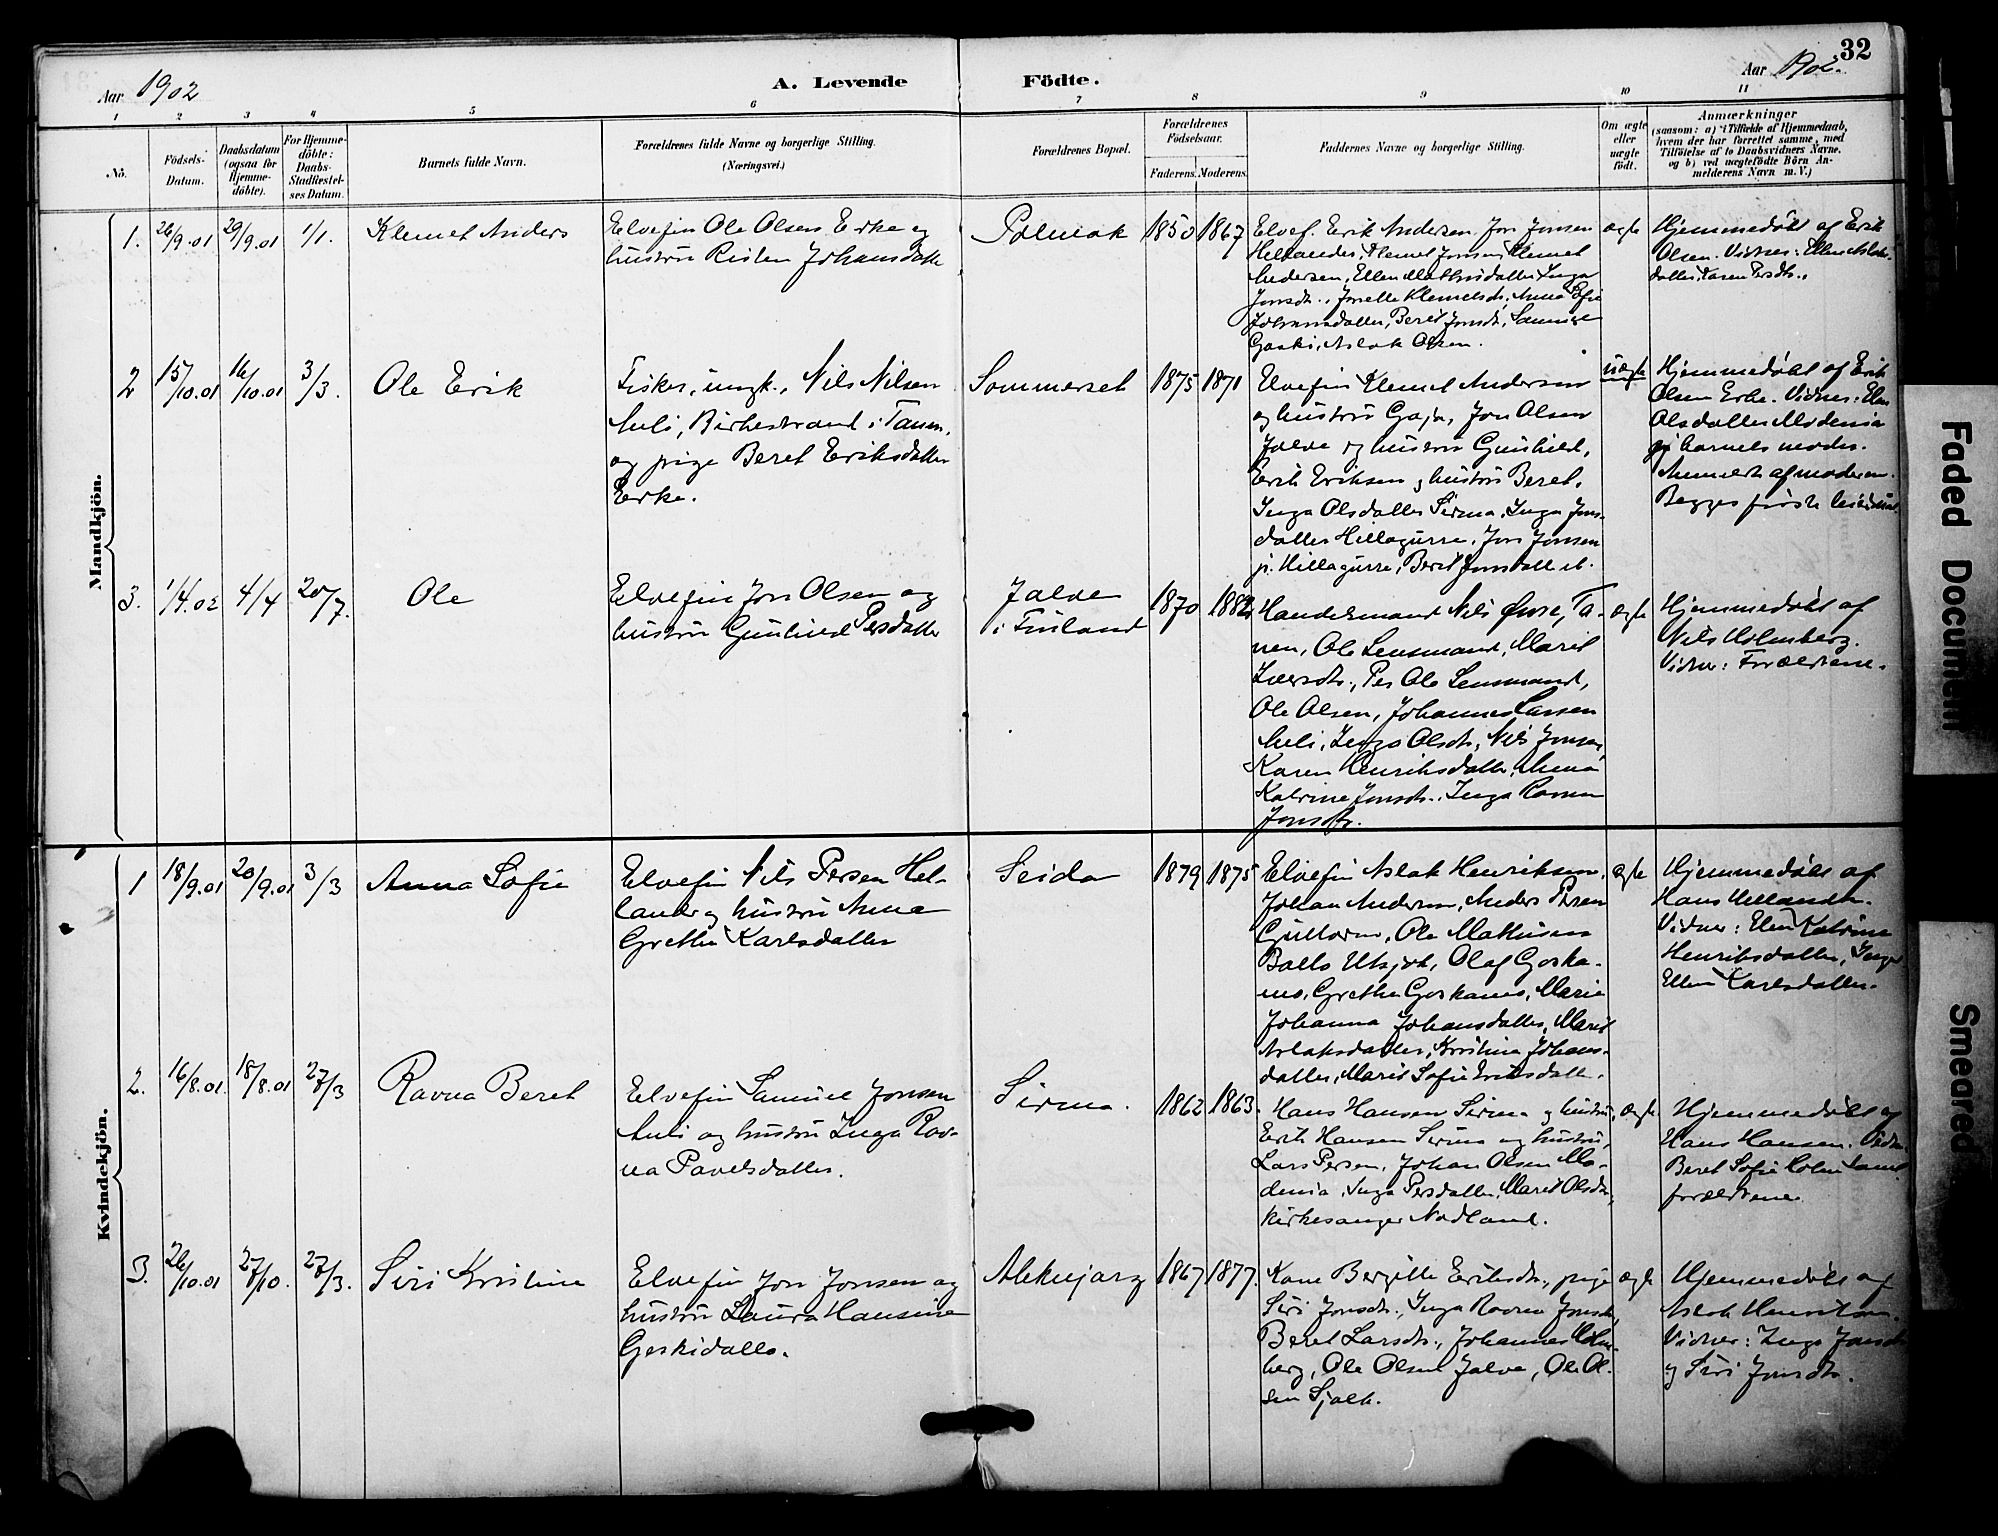 32
Aar 1902
A. Levende Födte.
Aar 1902.
1 2 3 4 5 6 7 8 9 10 11
No.
Födsels-
Datum.
Daabsdatum
(ogsaa for
Hjemme-
döbte).
For Hjemme-
döbte:
Daabs-
Stadfæstel-
ses Datum.
Barnets fulde Navn.
Forældrenes fulde Navne og borgerlige Stilling.
(Næringsvei.)
Forældrenes Bopæl.
Forældrenes
Födselsaar.
Faderens. Moderens.
Faddernes Navne og borgerlige Stilling.
Om ægte
eller
uægte
födt.
Anmærkninger
(saasom: a) i Tilfælde af Hjemmedaab,
hvem der har forrettet samme, med
Tilföielse af to Daabsvidners Navne,
og b) ved uægtefödte Börn An-
melderens Navn m. V.)
Mandkjön.
1. 26/9.01 29/9.01 1/1. Klemet Anders
Elvefin Ole Olsen Erke og
hustru Risten Johansdatt
Polmak 1850 1867
Elvef. Erik Andersen, Jon Jonsen
Hellander, Klemet Jonsen, Klemet
Andersen, Ellen Mathisdatter, Inga
Jonsdt., Klemetsdt., Anna Sofie
Johannsdatter, Beret Jonsdt., Samuel
Gaski, Aslak Olsen.
ægte
Hjemmedøbt af Erik
Olsen. Vidner: Ellen Aslak-
datter, Karen Persdt.
2 15/10.01 16/10.01 3/3. Ole Erik
Fisker, ungk., Nils Nilsen
Auli, Birkestrand i Tanen,
og pige Beret Eriksdatter
Erke.
Sommerset 1875 1871
Elvefin Klemet Andersen
og hustru Gaja, Jon Olsen
Jalve og hustru Gunhild,
Erik Eriksen og hustru Beret,
Inga Olsdatter Sirma, Inga Jons-
datter Hillagurre, Jon Jonsen
Hillagurre, Beret Jonsdatt
uægte
Hjemmedøbt af Erik
Olsen Erke. Vidner: Elen
Olsdatter Modenia
barnets moder.
Anmeldt af moderen.
Begges første leiermaal.
3. 1/4.02 4/4 20/7. Ole
Elvefin Jon Olsen og
hustru Gunhild Persdatter
Jalve
i Finland
1870 1882
Handelsmand Nils Øvre, Ta-
nen, Ole Lensmand, Marit
Iversdt., Per Ole Lensmand,
Ole Olsen, Johannes Larsen
Auli, Inga Olsdt., Nils Jonsen,
Karen Henriksdatter, Anna
Katrine Jonsdt., Inga Ravna
Jonsdt.
ægte
Hjemmedøbt af
Nils Holmberg.
Vidner: Forældrene.
Kvindekjön.
1 18/9.01 20/9.01 3/3 Anna Sofie
Elvefin Nils Persen Hel-
lander og hustru Anna
Grethe Karlsdatter
Seida 1879 1875
Elvefin Aslak Henriksen,
Johan Andersen, Anders Persen
Guttorm, Ole Mathisen
Ballo Utsjok, Olaf Goska-
mo, Grethe Goskamo, Marie
Johanna Johansdatter, Marit
Aslaksdatter, Kristine Johans-
datter, Marit Sofie Eriksdatt.
ægte
Hjemmedøbt af
Hans Hellander.
Vidner: Elen Katrine
Henriksdatter, Inger
Ellen Karlsdatter.
2. 16/8.01 18/8.01 27/3 Ravna Beret
Elvefin Samuel Jonsen
Auli og hustru Inga Rav-
na Pavelsdatter.
Sirma. 1862 1863.
Hans Hansen Sirma og hustru,
Erik Hansen Sirma og hustru,
Lars Persen, Johan Olsen Mo-
denia, Inga Persdatter, Marit Olsdt.,
kirkesanger Nodland.
ægte
Hjemmedøbt af
Hans Hansen. Vidn.
Beret Sofie samt
forældrene.
3. 26/10.01 27/10. 27/3. Siri Kristine
Elvefin Jon Jonsen og
hustru Laura Hansine
Geskidatter.
Aleknjarg 1867 1877.
Kone Bergitte Eriksdt., pige
Siri Jonsdt., Inga Ravna Jonsdt.,
Beret Larsdt., Johannes Holm-
berg, Ole Olsen Jalve, Ole Ol-
sen
ægte
Hjemmedøbt af
Aslak Henriksen.
Vidner: Inga Jonsdt.
og Siri Jonsdt.
Faded Document
Smeared